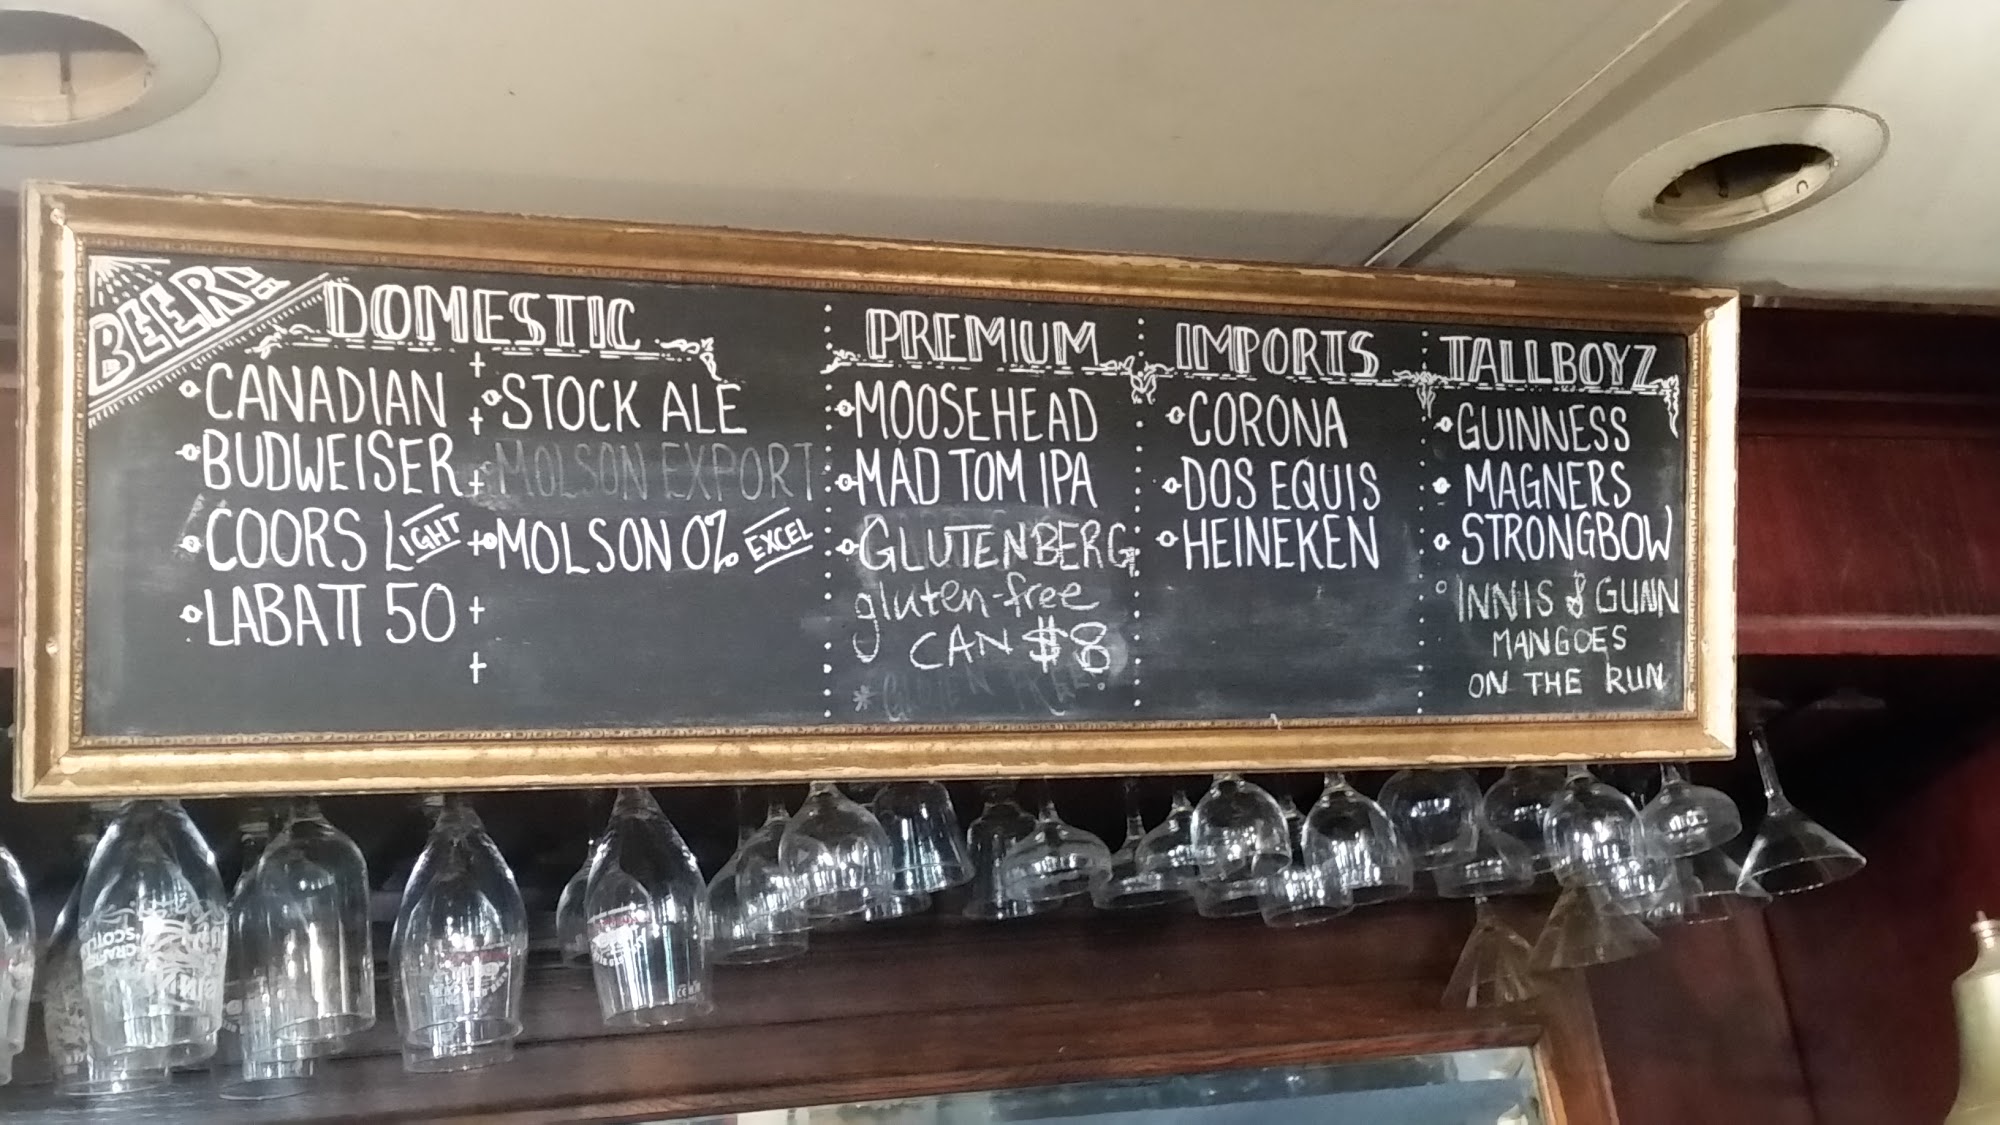 BEER!
DOMESTIC
CANADIAN
BUDWEISER
COORS LIGHT
LABATT 50
STOCK ALE
MOLSON EXPORT
MOLSON 0% EXCEL
PREMIUM
MOOSEHEAD
MAD TOM IPA
GLUTENBERG
gluten-free
CAN $8
IMPORTS
CORONA
DOS EQUIS
HEINEKEN
TALLBOYZ
GUINNESS
MAGNERS
STRONGBOW
INNIS & GUNN
MANGOES
ON THE RUN